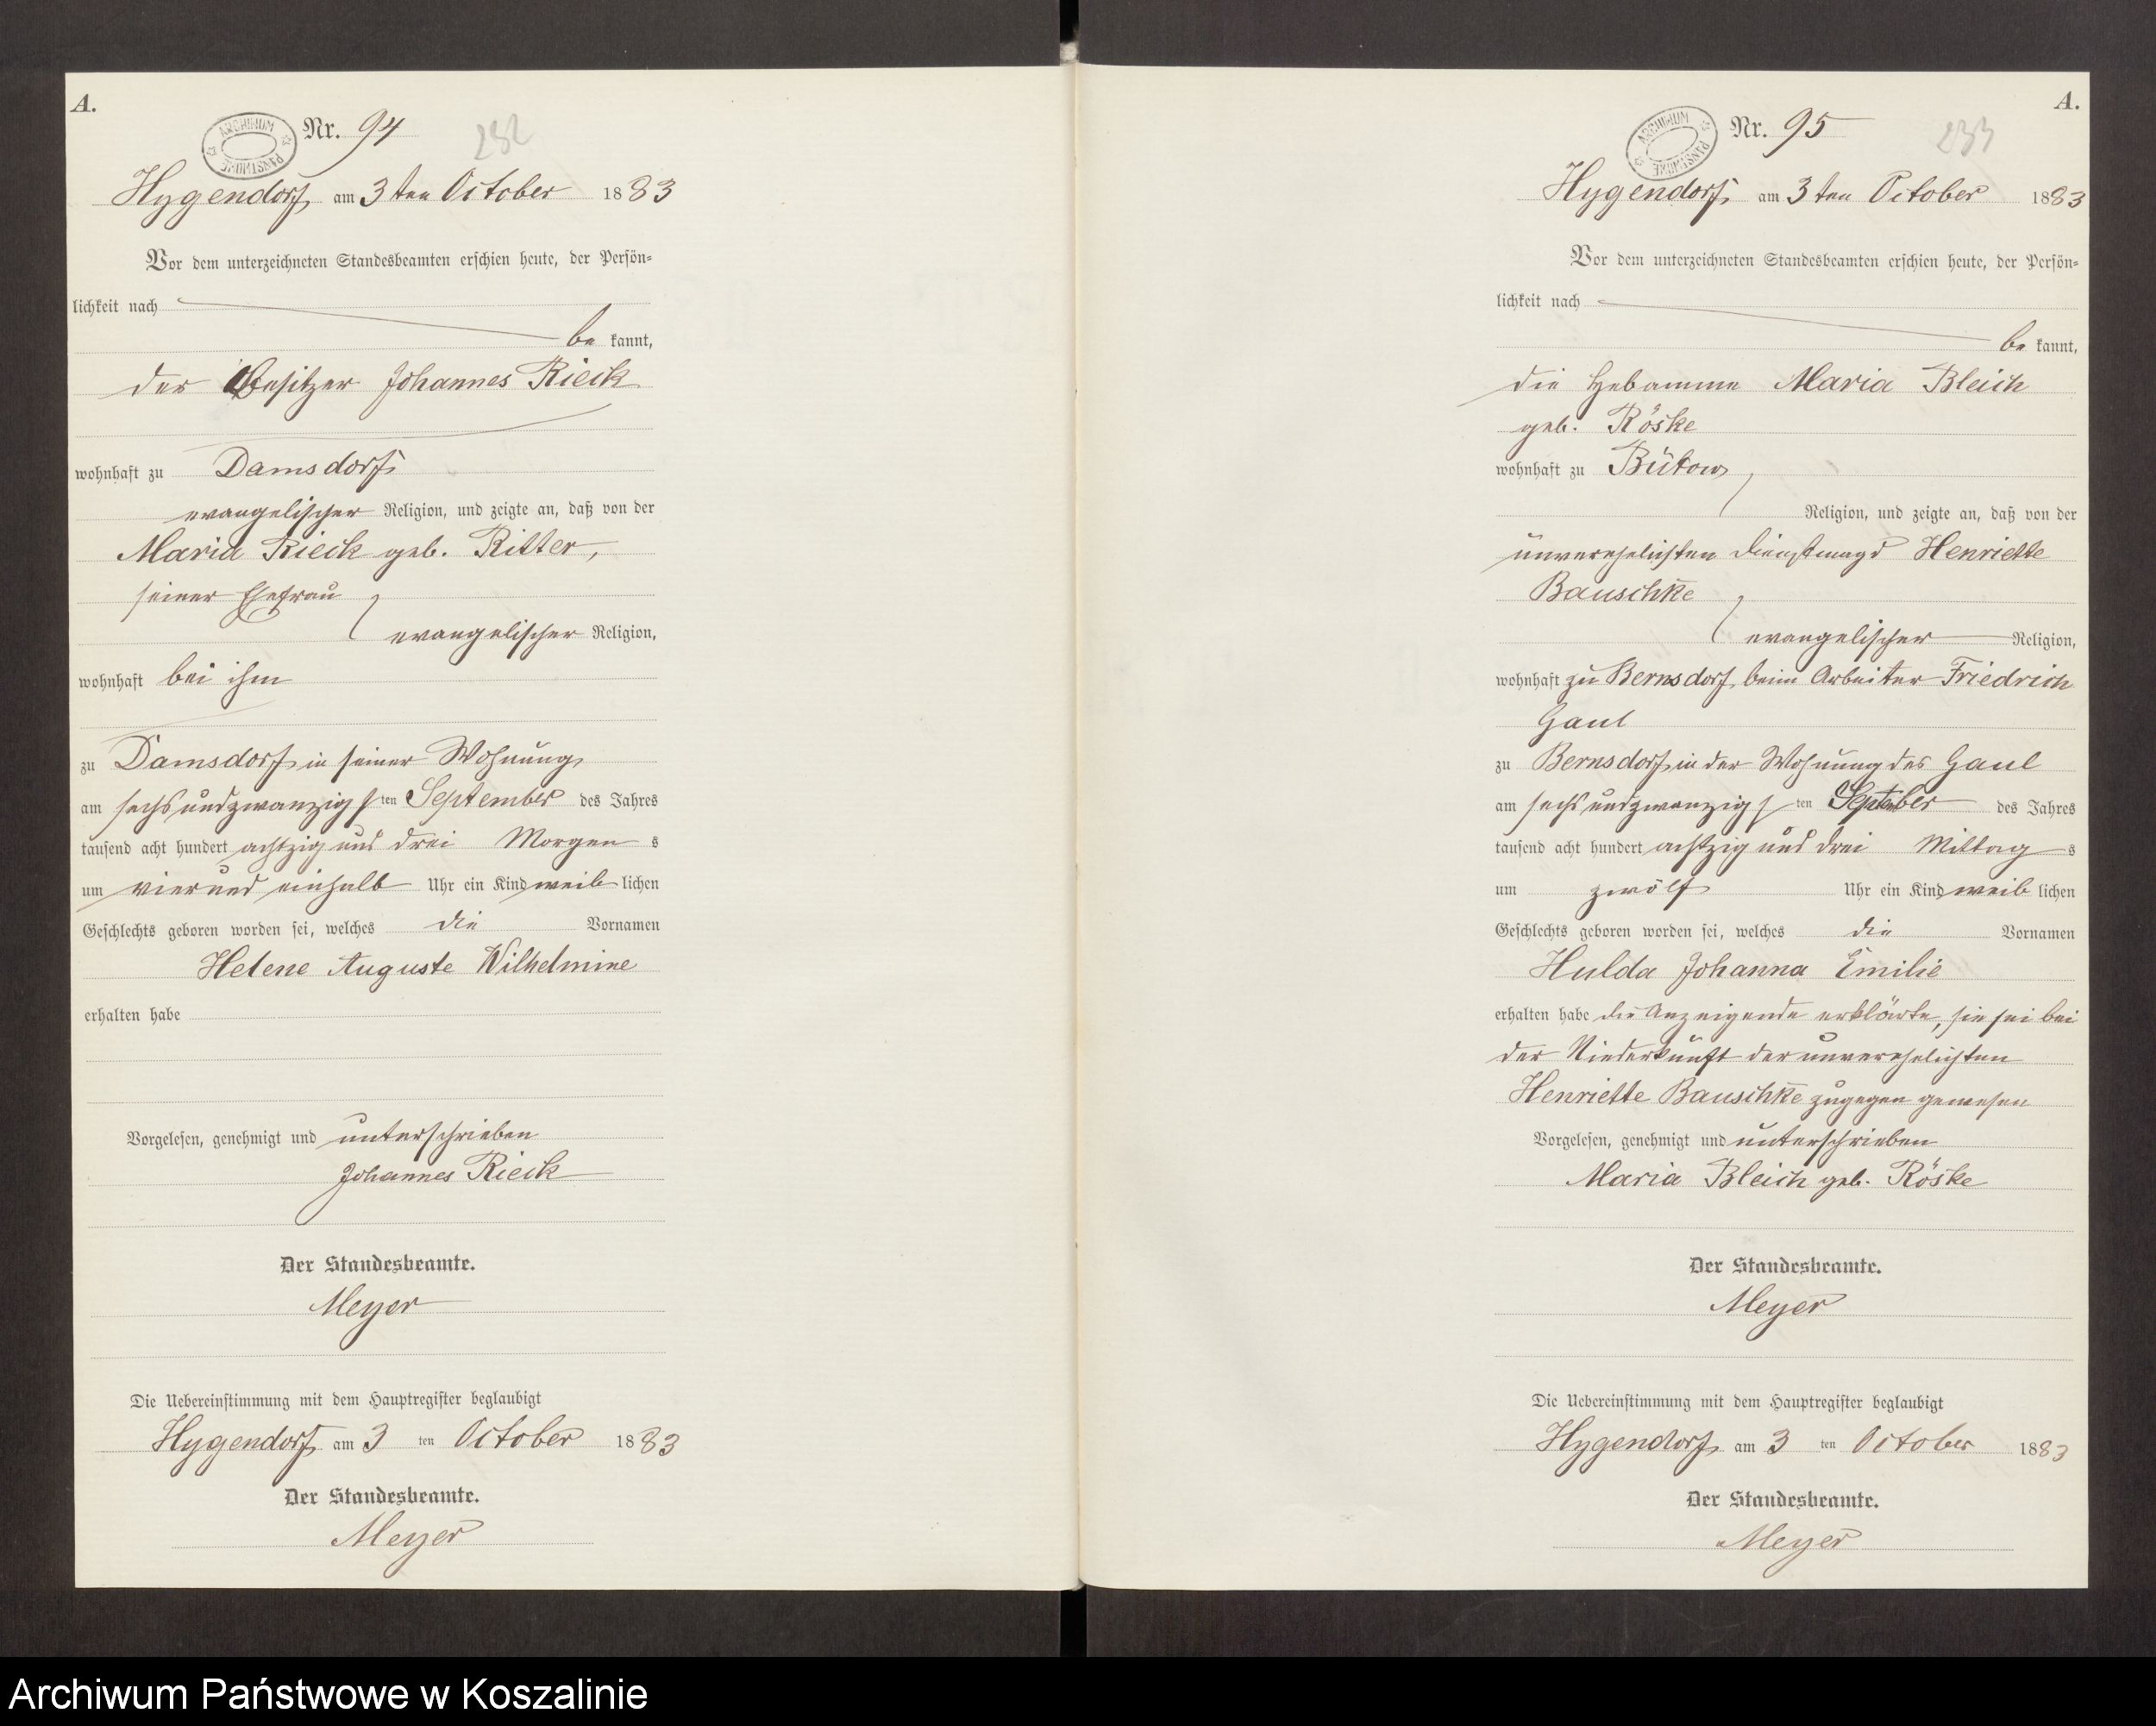 A.
ARCHIWUM PAŃSTWOWE
Nr. 94
232
Hygendorf, am 3ten October 1883
Vor dem unterzeichneten Standesbeamten erschien heute, der Persön-
lichkeit nach
be kannt,
der Besitzer Johannes Rieck
wohnhaft zu Damsdorf
evangelischer Religion, und zeigte an, daß von der
Maria Rieck geb. Ritter,
seiner Ehefrau
evangelischer Religion,
wohnhaft bei ihm
zu Damsdorf, in seiner Wohnung
am sechs und zwanzigsten September des Jahres
tausend acht hundert achtzig und drei Morgens
um vier und einhalb Uhr ein Kind weiblichen
Geschlechts geboren worden sei, welches die Vornamen
Helene Auguste Wilhelmine
erhalten habe
Vorgelesen, genehmigt und unterschrieben
Johannes Rieck
Der Standesbeamte.
Meyer
Die Uebereinstimmung mit dem Hauptregister beglaubigt
Hygendorf, am 3 ten October 1883
Der Standesbeamte.
Meyer
A.
ARCHIWUM PAŃSTWOWE
Nr. 95
233
Hygendorf, am 3ten October 1883
Vor dem unterzeichneten Standesbeamten erschien heute, der Persön-
lichkeit nach
be kannt,
die Hebamme Maria Bleich
geb. Röske
wohnhaft zu Bütow,
Religion, und zeigte an, daß von der
unverehelichten Dienstmagd Henriette
Bauschke
evangelischer Religion,
wohnhaft zu Bernsdorf, beim Arbeiter Friedrich
Gaul
zu Bernsdorf, in der Wohnung des Gaul
am sechs und zwanzigsten September des Jahres
tausend acht hundert achtzig und drei Mittags
um zwölf Uhr ein Kind weiblichen
Geschlechts geboren worden sei, welches die Vornamen
Hulda Johanna Emilie
erhalten habe die Anzeigende erklärte, sie sei bei
der Niederkunft der unverehelichten
Henriette Bauschke zugegen gewesen
Vorgelesen, genehmigt und unterschrieben
Maria Bleich geb. Röske
Der Standesbeamte.
Meyer
Die Uebereinstimmung mit dem Hauptregister beglaubigt
Hygendorf, am 3 ten October 1883
Der Standesbeamte.
Meyer
Archiwum Państwowe w Koszalinie